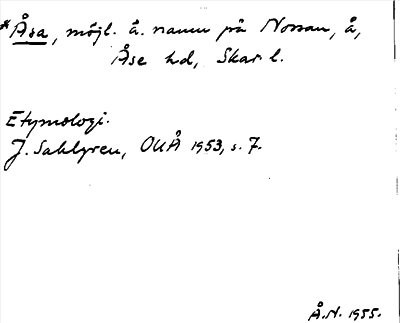 *Åsa, möjl. ä. namn på Nossan, å,
Åse hd, Skar. l.
Etymologi.
J. Sahlgren, OUÅ 1953, s. 7.
Å.N. 1955.